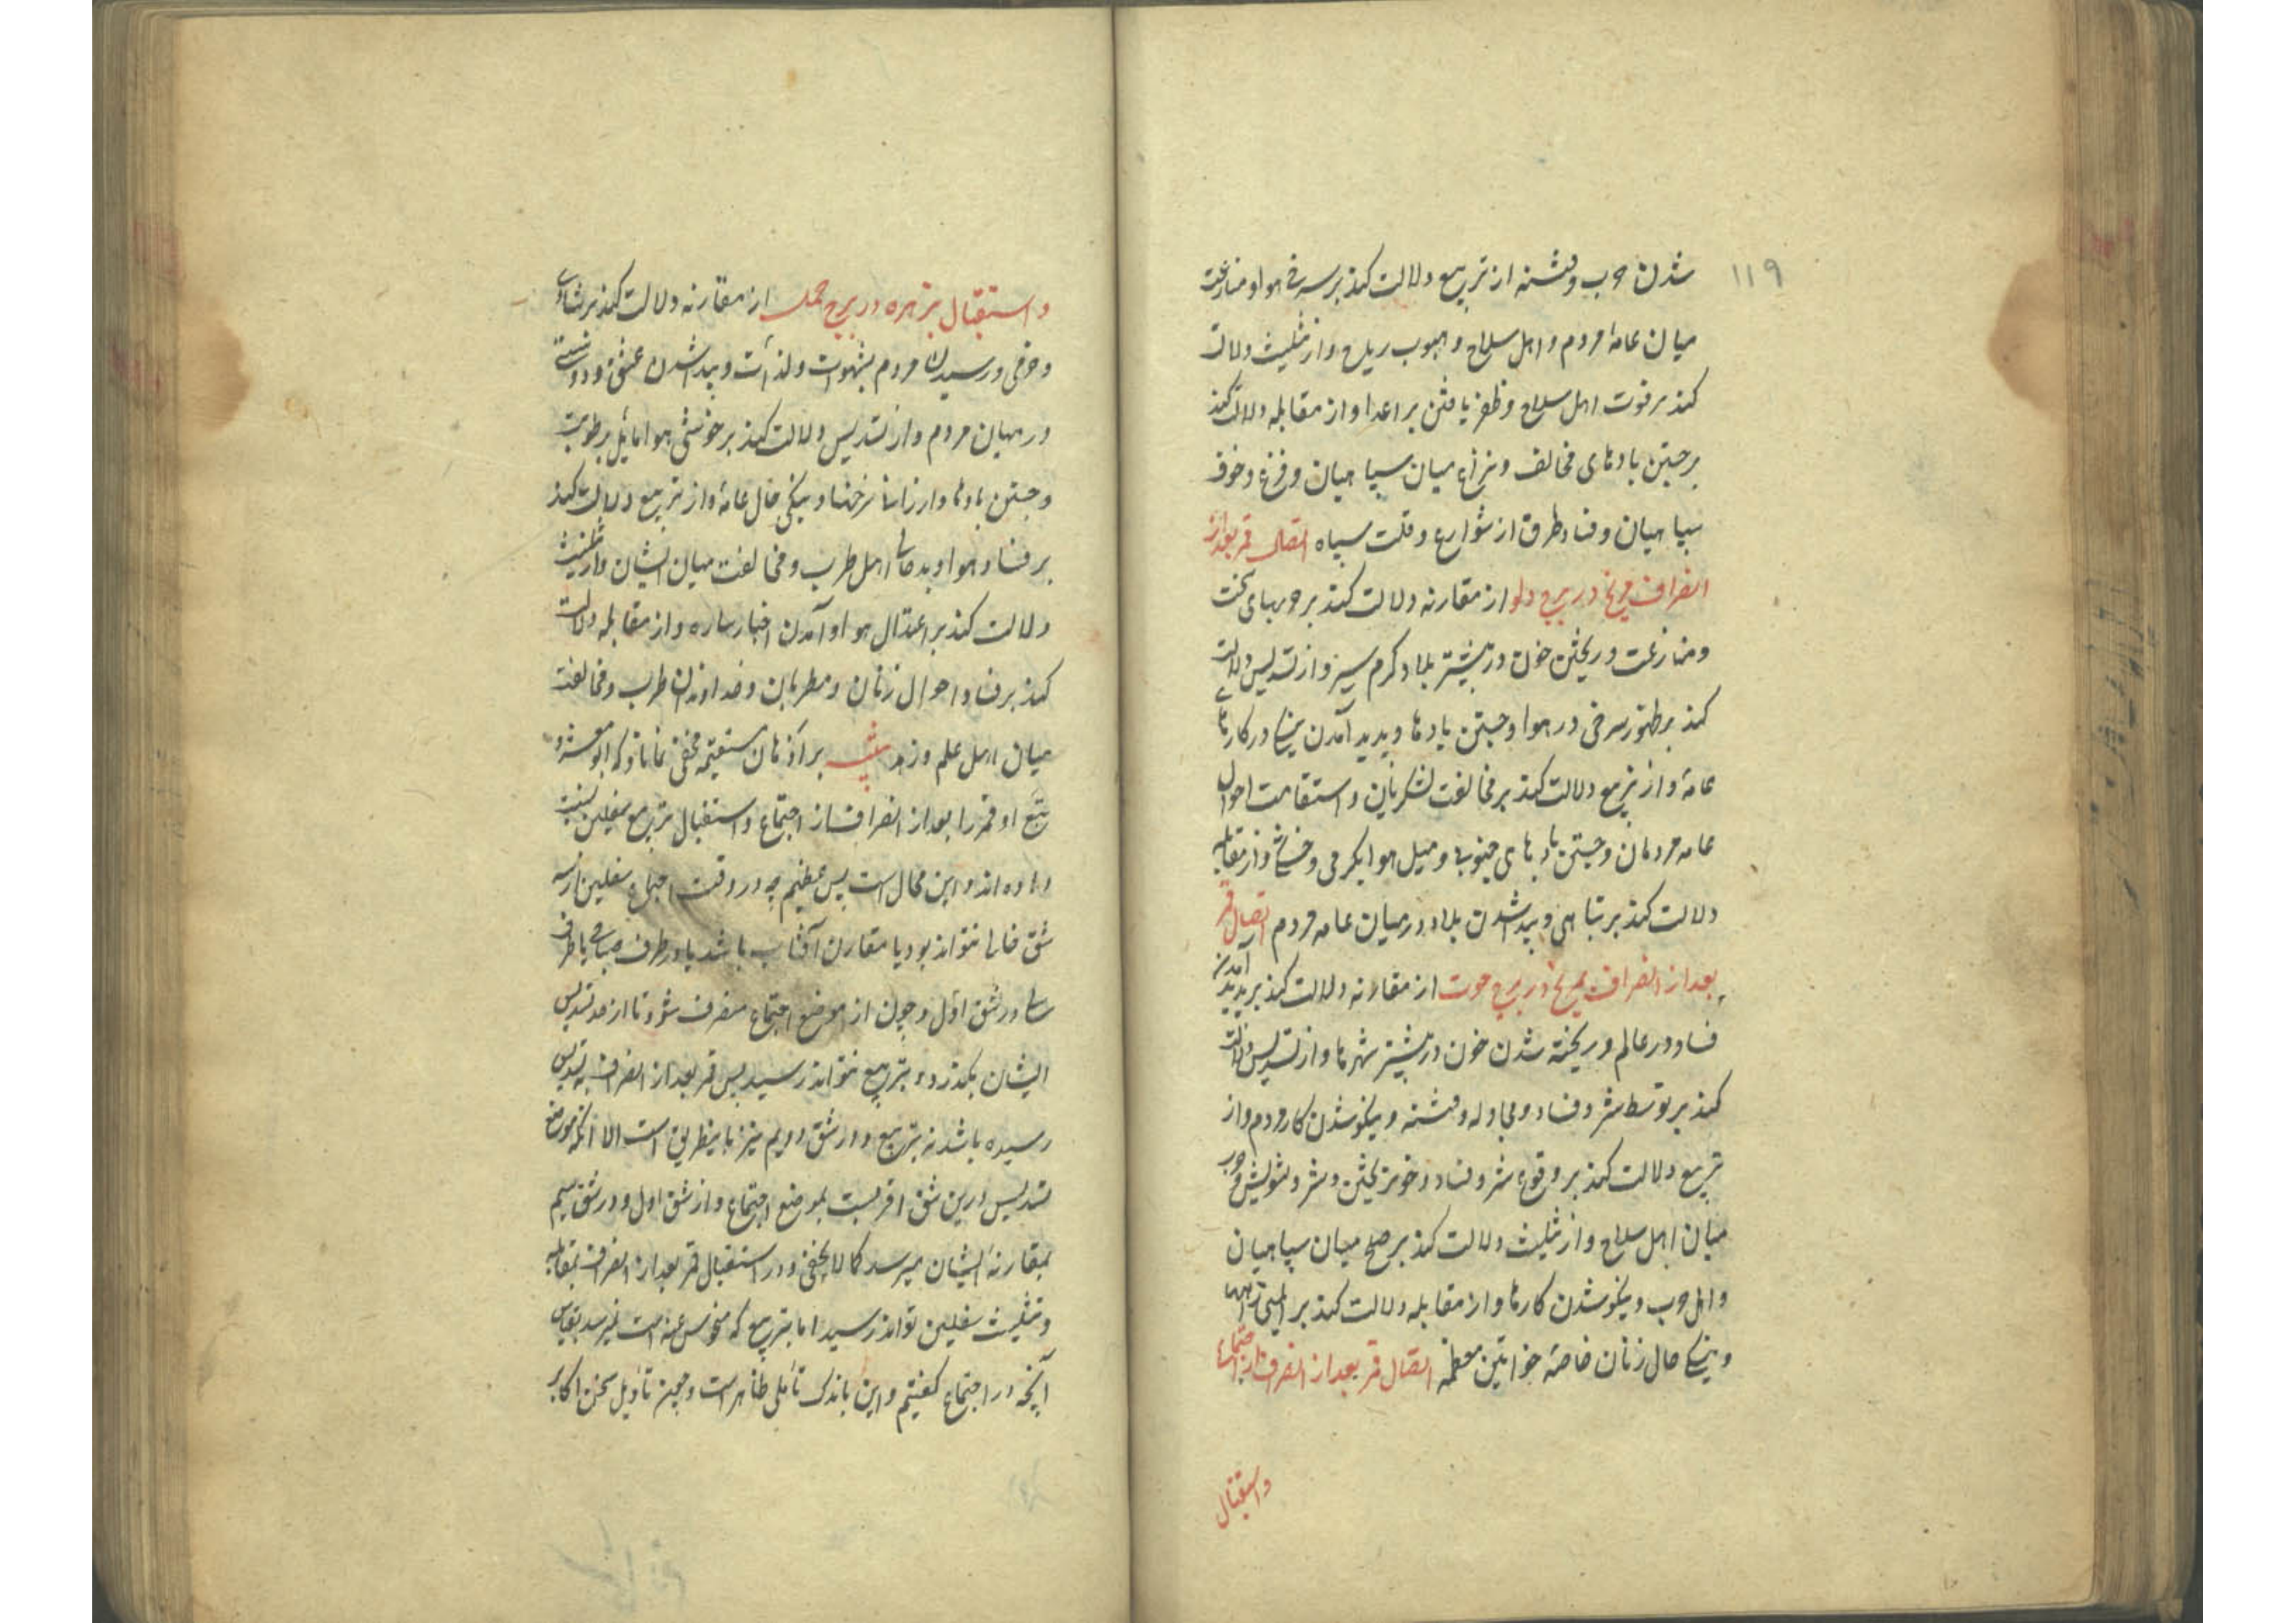 ۱۱۹
شدن حرب و فتنه از تربیع دلالت کند بر سرخی هوا و منازعت
میان عامهٔ مردم و اهل سلاح و هبوب ریاح و از تثلیث دلالت
کند بر قوت اهل سلاح و ظفر یافتن بر اعدا و از مقابله دلالت کند
بر جستن بادهای مخالف و نزاع میان سپاهیان و فزع و خوف
سپاهیان و فساد طرق از شوارع و قلت سپاه اتصال قمر بعد از
انصراف مریخ در برج دلو از مقارنه دلالت کند بر حربهای سخت
و منازعت و ریختن خون در بیشتر بلاد گرم سیر و از تسدیس دلالت
کند بر ظهور سرخی در هوا و جستن بادها و پدید آمدن نیکی در کارهای
عامه و از تربیع دلالت کند بر مخالفت لشکریان و استقامت احوال
عامه مردمان و جستن بادهای جنوبی و میل هوا بگرمی و خشکی و از مقابله
دلالت کند بر تباهی و پیدا شدن بلا در میان عامه مردم اتصال قمر
بعد از انصراف مریخ در برج حوت از مقارنه دلالت کند بر پدید آمدن
فساد در عالم و ریخته شدن خون در بیشتر شهرها و از تسدیس دلالت
کند بر توسط شر و فساد و مجادله و فتنه و نیکو شدن کار مردم و از
تربیع دلالت کند بر وقوع شر و فساد و خون ریختن و شر و تشویش و حرب
میان اهل سلاح و از تثلیث دلالت کند بر صلح میان سپاهیان
و اهل حرب و نیکو شدن کارها و از مقابله دلالت کند بر ایمنی راهها
و نیکی حال زنان خاصهٔ خواتین معظمه اتصال قمر بعد از انصراف از اجتماع
واستقبال
واستقبال بزهره در برج حمل از مقارنه دلالت کند بر شادی
و خرمی و رسیدن مردم بشهوات و لذات و پیدا شدن عشق و دوستی
در میان مردم و از تسدیس دلالت کند بر خوشی هوا مایل برطوبت
و جستن بادها و ارزانی نرخها و نیکی حال عامه و از تربیع دلالت کند
بر فساد هوا و بد حالی اهل طرب و مخالفت میان ایشان و از تثلیث
دلالت کند بر اعتدال هوا و آمدن اخبار ساره و از مقابله دلالت
کند بر فساد احوال زنان و مطربان و خداوندان طرب و مخالفت
میان اهل علم و زهد تنبیه بر اذهان مستقیمه مخفی نماناد که ابو معشر و
تبع او قمر را بعد از انصراف از اجتماع و استقبال تربیع سفلیین نسبت
داده اند و این محال است بس عظیم چه در وقت اجتماع سفلیین از سه
شق خالی نتواند بود یا مقارن آفتاب باشد یا در طرف صباحی یا طرف
در شق اول و چون از موضع اجتماع منصرف شود تا از حد تسدیس
ایشان بگذرد و بتربیع نتواند رسید پس قمر بعد از انصراف به تسدیس
رسیده باشد نه بتربیع و در شق دویم نیز باینطریق است الا آنکه موضع
تسدیس درین شق اقربست بموضع اجتماع و از شق اول و در شق سیم
بمقارنهٔ ایشان میرسد کما لا یخفی و در استقبال قمر بعد از انصراف بمقابله
و تثلیث سفلیین تواند رسید اما بتربیع که منحوس عنه است نمیرسد بقیاس
آنچه در اجتماع گفتیم و این باندک تأملی ظاهر است و چون تأویل سخن اکابر